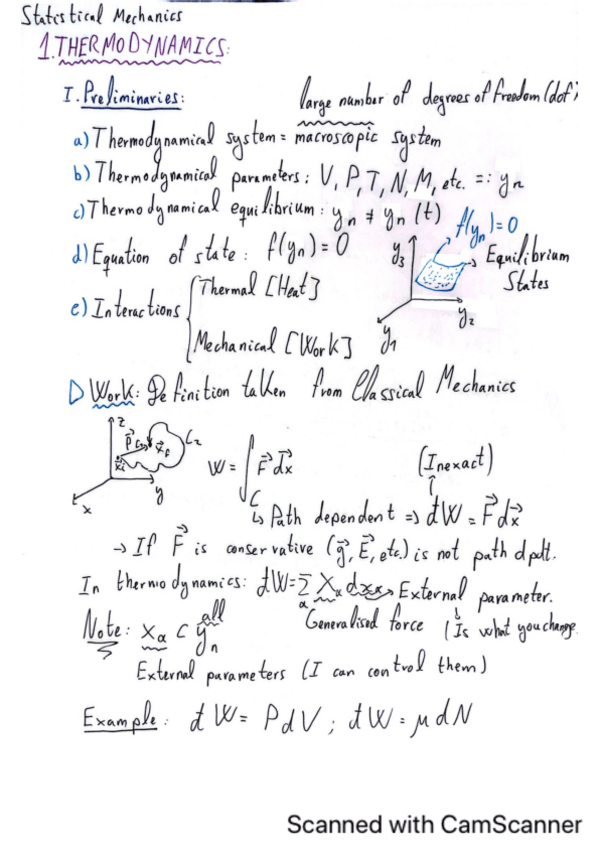 Statistical Mechanics
1. THERMODYNAMICS:
I. Preliminaries:
large number of degrees of freedom (dof)
a) Thermodynamical system = macroscopic system
b) Thermodynamical parameters: V, P, T, N, M, etc. =: yn
c) Thermodynamical equilibrium: yn ≠ yn (t)
d) Equation of state: f(yn) = 0
f(yn) = 0
y3
Equilibrium States
y2
y1
e) Interactions { Thermal [Heat]
Mechanical [Work]
D Work: Definition taken from Classical Mechanics
z
C2
y
x
W = ∫C F⃗ dx⃗
(Inexact)
↳ Path dependent => đW = F⃗ dx⃗
→ If F⃗ is conservative (g⃗, E⃗, etc.) is not path dpdt.
In thermodynamics: đW = Σα Xα dxα → External parameter.
Generalised force
(Is what you change
Note: xα ⊂ yn all
External parameters (I can control them)
Example: đW = PdV ; đW = μdN
Scanned with CamScanner